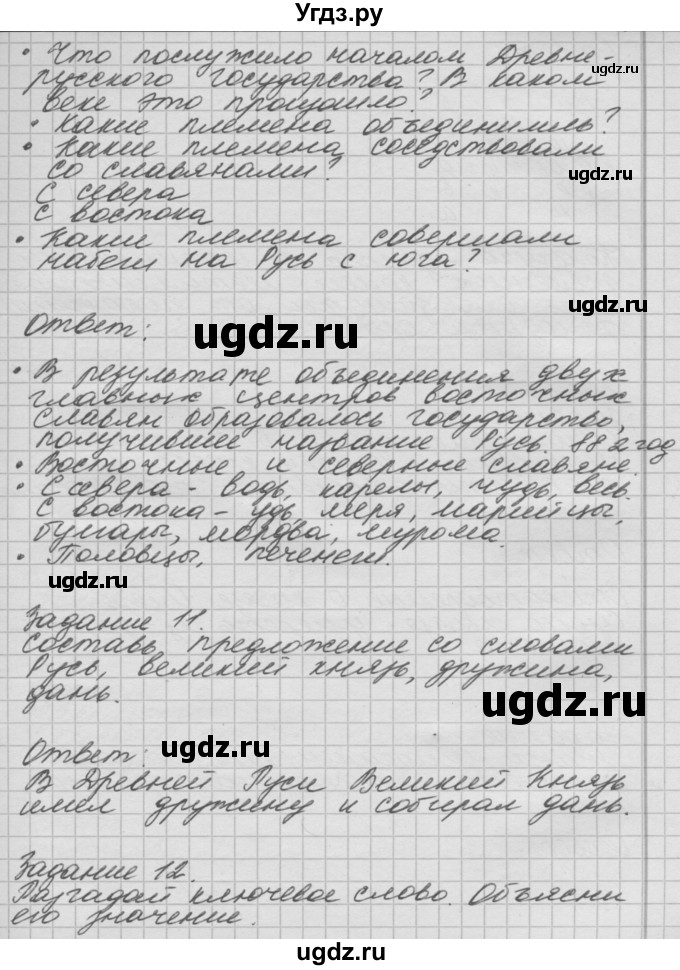 Угдз.ру
• Что послужило началом Древне-
русского государства? В каком
веке это произошло?
• Какие племена объединились?
• Какие племена соседствовали
со славянами?
ugdz.ru
С севера
С востока
• Какие племена совершали
набеги на Русь с юга?
ugdz.ru
Ответ:
ugdz.ru
• В результате объединения двух
главных центров восточных
славян образовалось государство,
получившее название Русь. 882 год
• Восточные и северные славяне.
• С севера - водь, карелы, чудь, весь.
С востока - меря, марийцы,
булгары, мордва, мурома.
• Половцы, печенеги.
ugdz.ru
Задание 11.
Составь предложение со словами
Русь, великий князь, дружина,
дань.
ugdz.ru
Ответ:
ugdz.ru
В Древней Руси Великий Князь
имел дружину и собирал дань.
Задание 12.
Разгадай ключевое слово. Объясни
его значение.
ugdz.ru